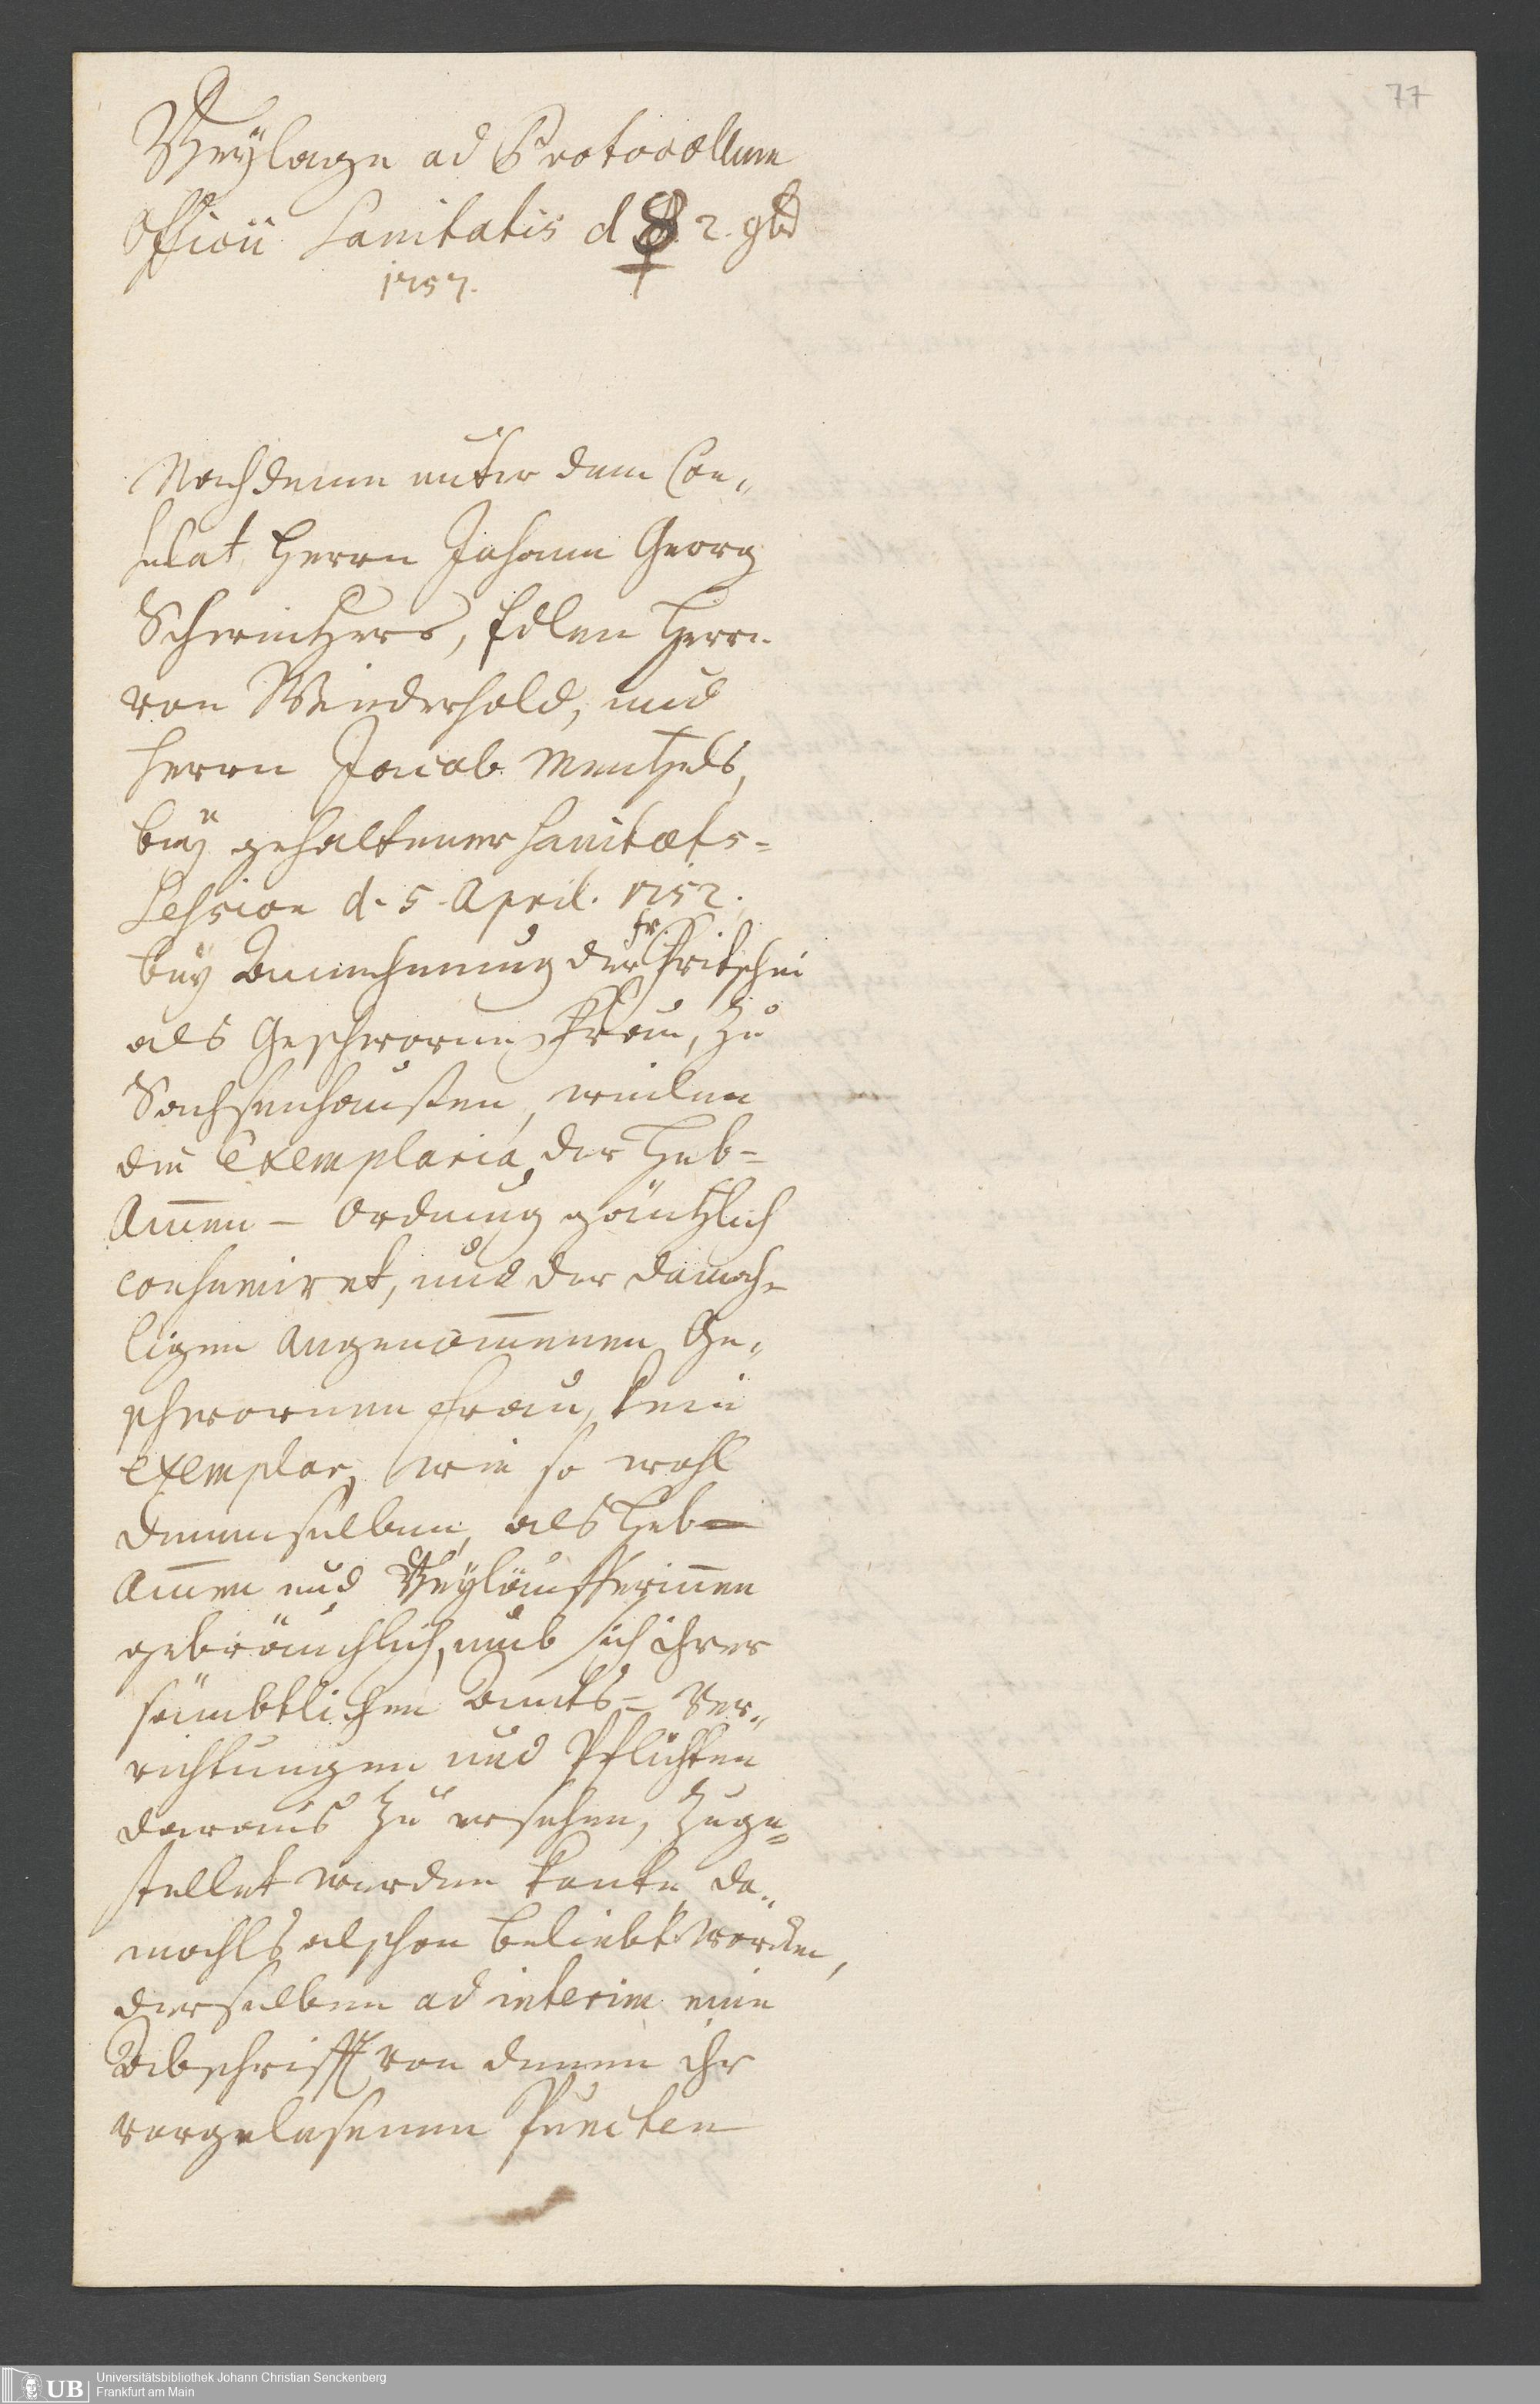 77
Beylage ad Protocollum
Officii Sanitatis d 2. 9br
1757.
Nachdeme unter dem Con„
sulat, Herrn Johann Georg
Schweitzers, Edlen Herrn
von Wiederhold, und
Herrn Jacob Mentzels,
bey gehaltener Sanitaets-
Session d. 5. April. 1752.
bey Annehmung der Fr. Fritschin
als Geschworne Frau, zu
Sachsenhaußen, weilen
die Exemplaria der Heb-
Am̄en - Ordnung gäntzlich
consumiret, und der damah„
ligen angenom̄enen Ge„
schwornen Frau, kein
Exemplar, wie so wohl
denenselben, als Heb-
Am̄en und Beyläufferin̄en
gebräuchlich, umb sich ihrer
sämbtlichen Ambts- Ver„
richtungen und Pflichten
daraus zu ersehen, zuge„
stellet werden konte, da„
mahls alschon beliebt worden,
derselben ad interim eine
Abschrifft von denen ihr
vorgelesenen Puncten
UB
Universitätsbibliothek Johann Christian Senckenberg
Frankfurt am Main